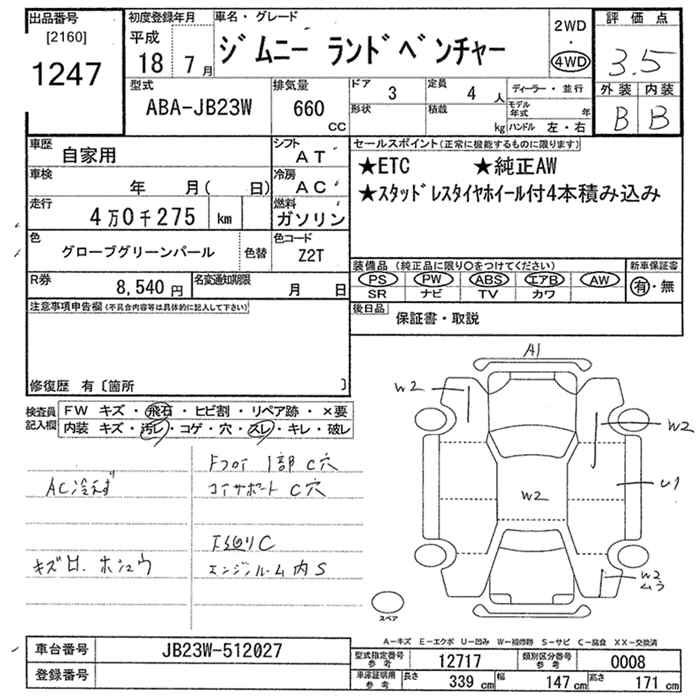 出品番号
[2160]
1247
初度登録年月
平成
18年 7月
車名・グレード
ジムニー ランドベンチャー
2WD
・
4WD
評価点
3.5
外装 内装
B B
型式
ABA-JB23W
排気量
660 CC
ドア 3
形状
定員 4 人
積載 kg
ディーラー・並行
モデル年式 年
ハンドル 左・右
車歴 自家用
シフト AT
車検 年 月( 日)
冷房 AC
走行 4万0千275 km
燃料 ガソリン
色 グローブグリーンパール 色替
色コード Z2T
R券 8,540 円
名変通知期限 月 日
セールスポイント(正常に機能するものに限ります)
★ETC ★純正AW
★スタッドレスタイヤホイール付4本積み込み
装備品 (純正品に限り○をつけてください)
PS PW ABS エアB AW
SR ナビ TV カワ
新車保証書
有・無
後日品 保証書・取説
注意事項申告欄(不具合内容等は具体的に記入して下さい)
修復歴 有〔箇所 〕
検査員記入欄
FW キズ・飛石・ヒビ割・リペア跡・×要
内装 キズ・汚レ・コゲ・穴・スレ・キレ・破レ
1部C穴
AC冷えず
コアサポートC穴
下廻りC
キズ H. ホシュウ
エンジンルーム内S
A1
W2
W2
W2
U1
W2
ムラ
スペア
A-キズ E-エクボ U-凹み W-補修跡 S-サビ C-腐食 XX-交換済
車台番号 JB23W-512027
登録番号
型式指定番号 参考 12717
類別区分番号 参考 0008
車庫証明用 参考 長さ 339 cm 幅 147 cm 高さ 171 cm